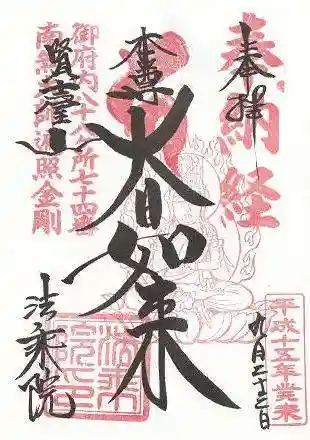 奉納経
奉拝
平成十五年癸未
九月二十三日
本尊
大日如来
御府内八十八ヶ所七十四番
南無大師遍照金剛
賢臺山
法乗院
法乗院印